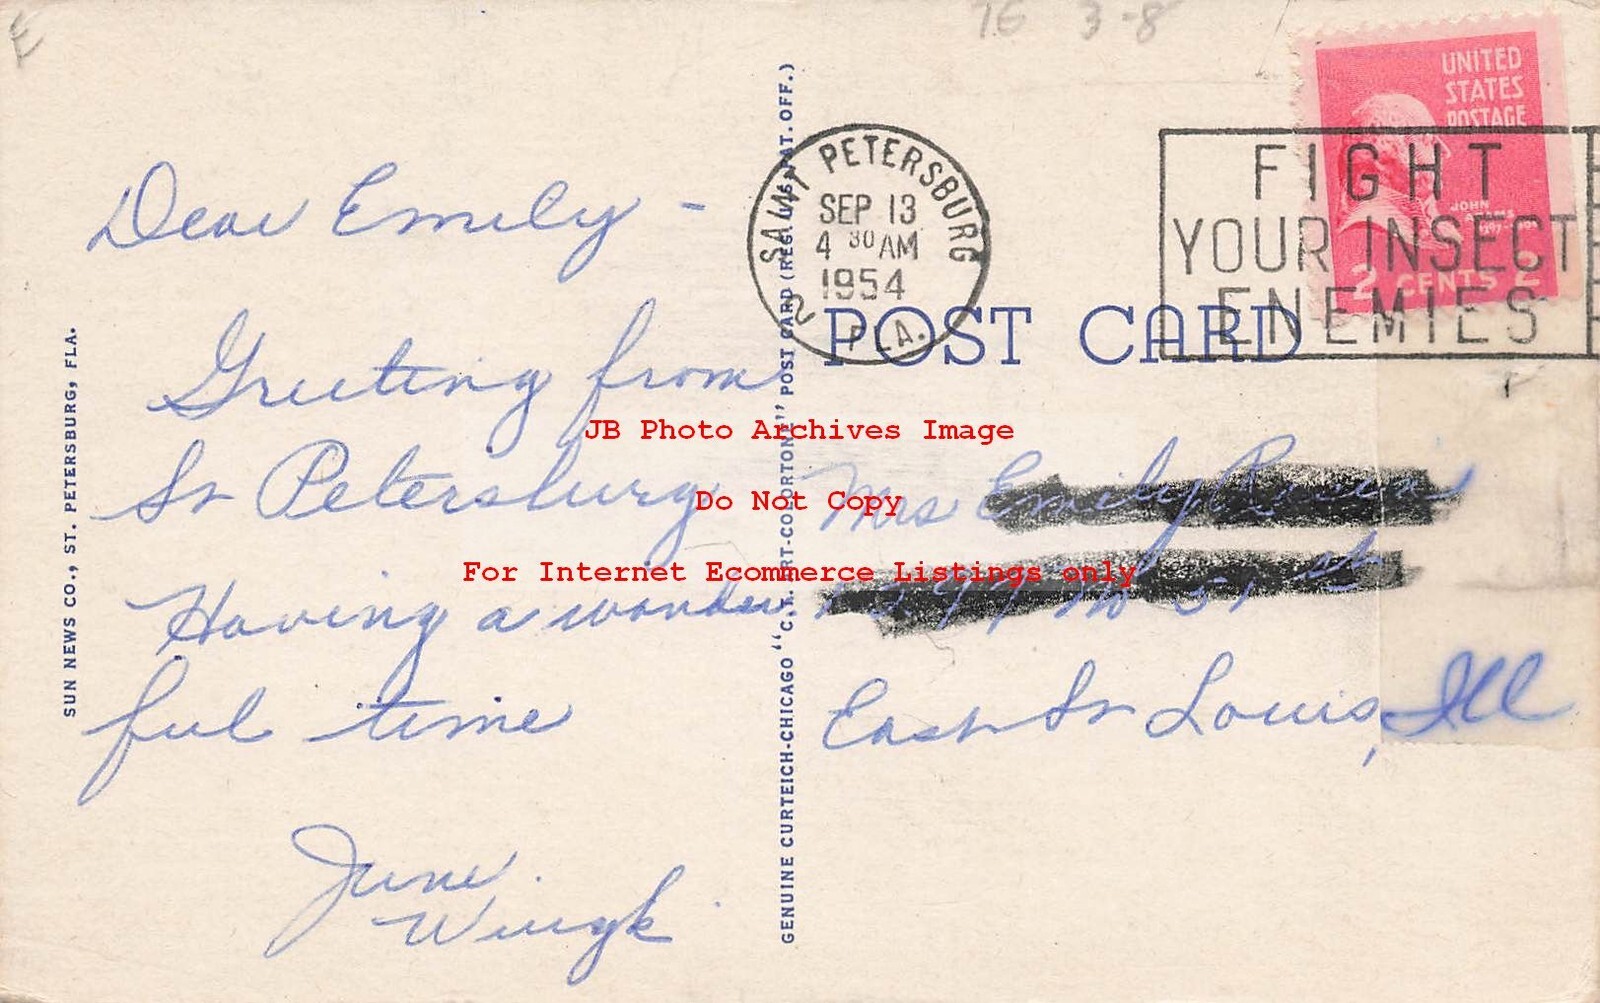 E
76 3-8
UNITED
STATES
POSTAGE
JOHN
ADAMS
2 CENTS 2
SAINT PETERSBURG
SEP 13
4 30 AM
1954
2 FLA.
FIGHT
YOUR INSECT
ENEMIES
POST CARD
Dear Emily -
Greeting from
St Petersburg
Having a wonder
ful time
June
Mrs Emily
East St Louis, Ill
SUN NEWS CO., ST. PETERSBURG, FLA.
GENUINE CURTEICH-CHICAGO "C.T. ART-COLORTONE" POST CARD (REG. U.S. PAT. OFF.)
JB Photo Archives Image
Do Not Copy
For Internet Ecommerce Listings only